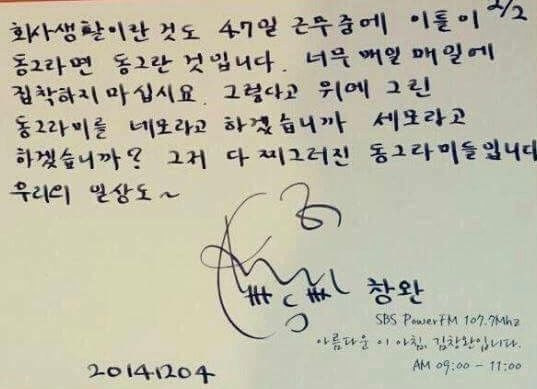 2/2
회사생활이란 것도 47일 근무 중에 이틀이
동그라면 동그란 것입니다. 너무 매일 매일에
집착하지 마십시요. 그렇다고 위에 그린
동그라미를 네모라고 하겠습니까 세모라고
하겠습니까? 그저 다 찌그러진 동그라미들입니다
우리의 일상도~
창완
SBS PowerFM 107.7Mhz
아름다운 이 아침, 김창완입니다.
AM 09:00 - 11:00
20141204